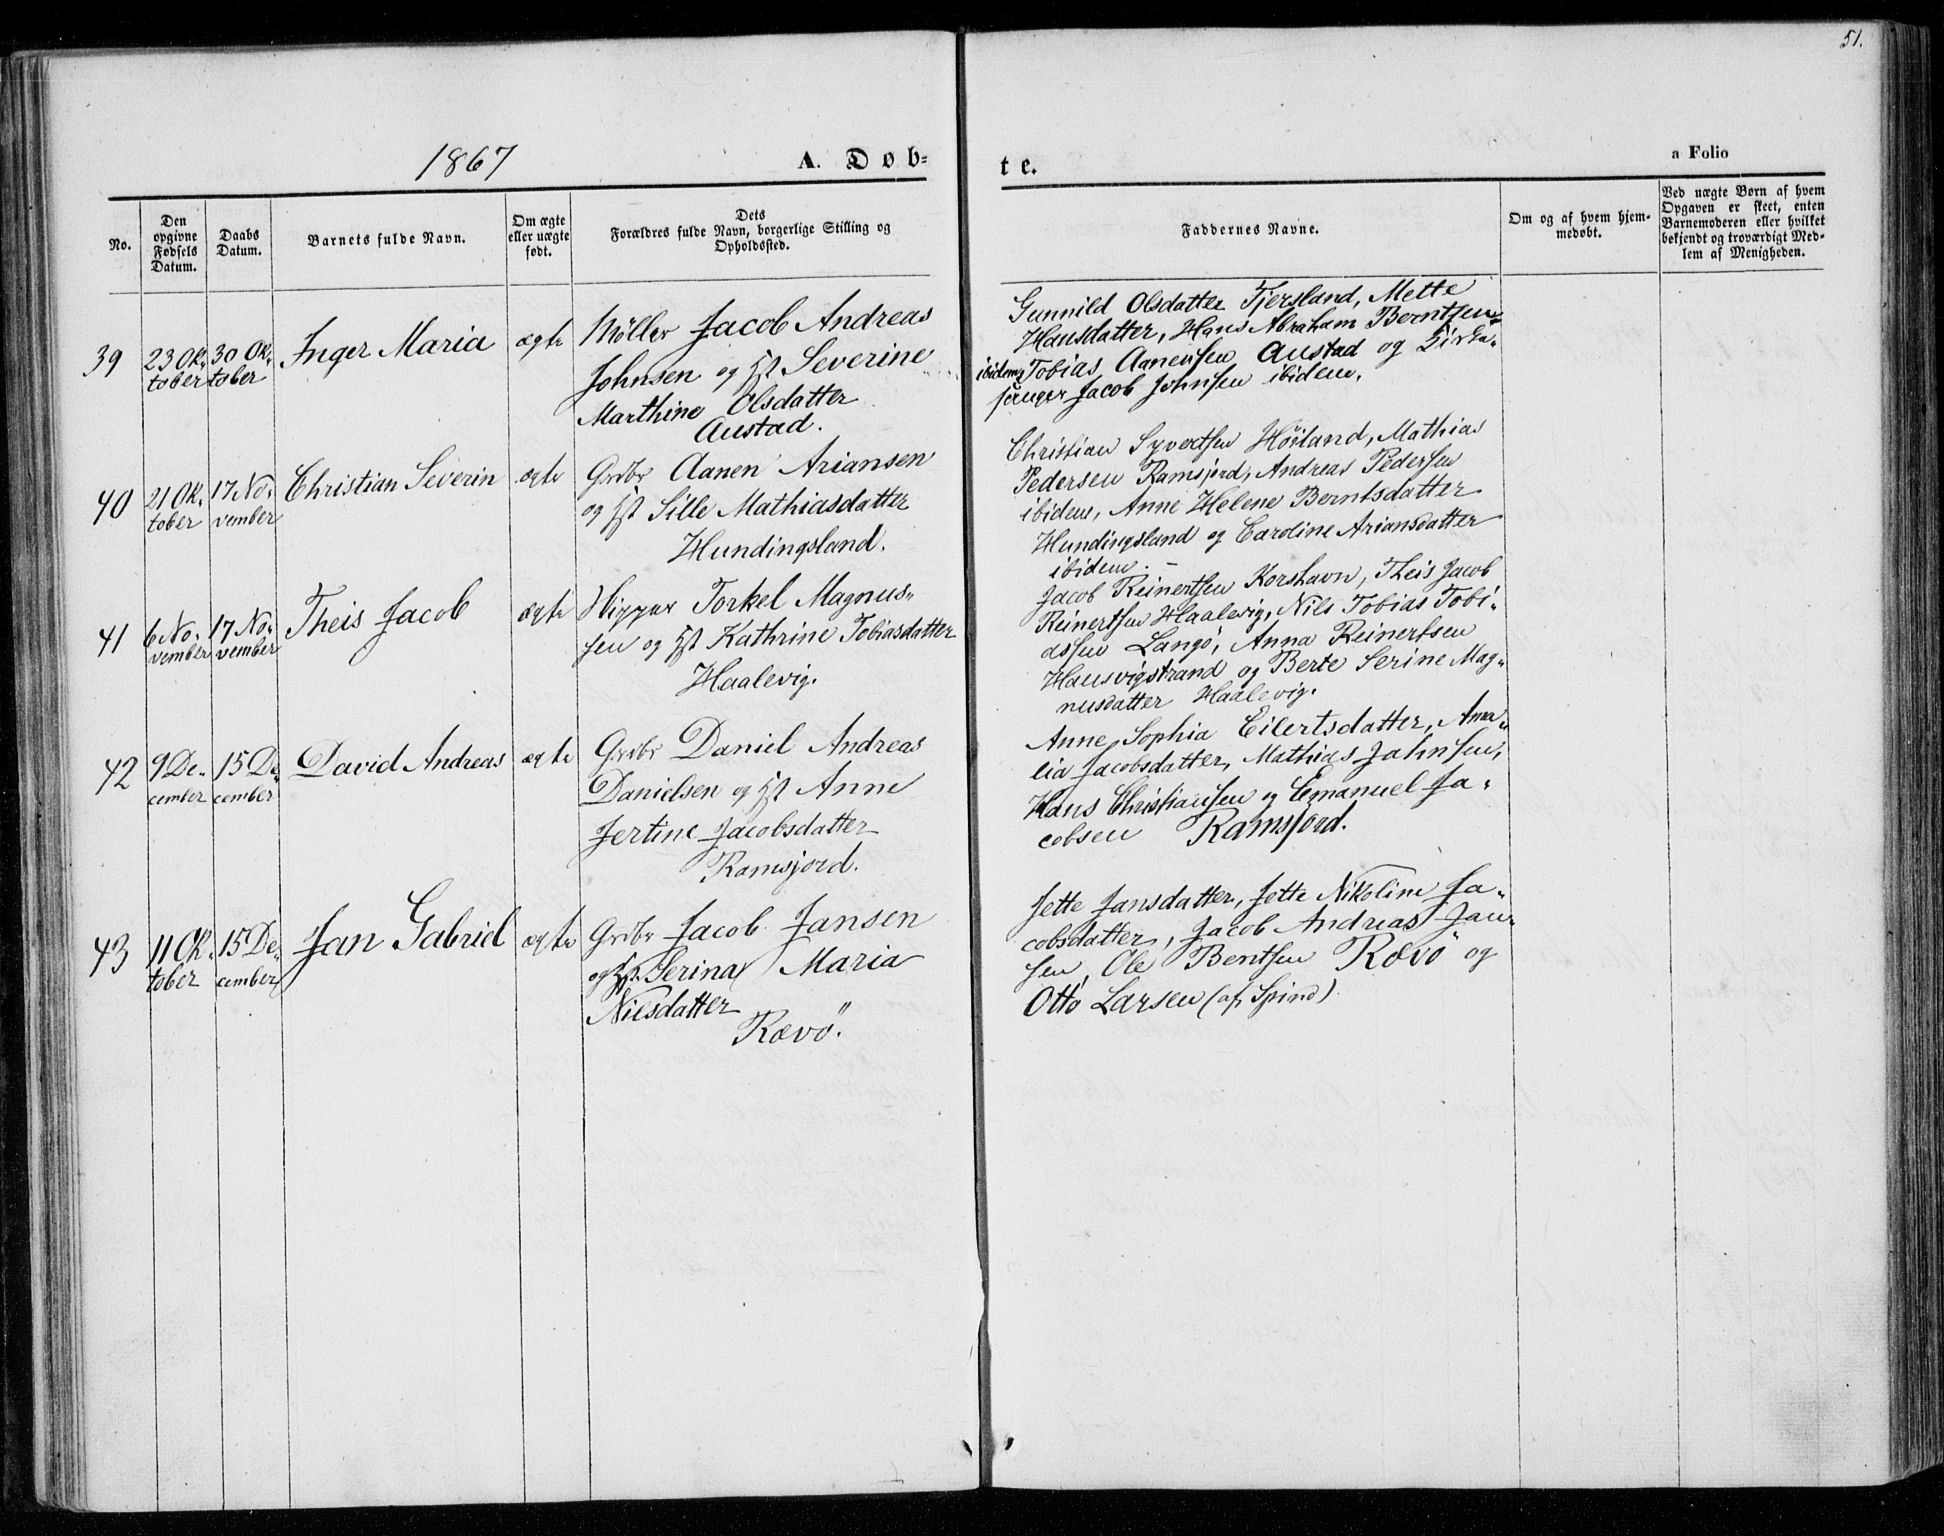 51.
1867
A. Døb-
te.
a Folio
No.
Den
opgivne
Fødsels
Datum.
Daabs
Datum.
Barnets fulde Navn.
Om ægte
eller uægte
født.
Dets
Forældres fulde Navn, borgerlige Stilling og
Opholdssted.
Faddernes Navne.
Om og af hvem hjem-
medøbt.
Ved uægte Børn af hvem
Opgaven er skeet, enten
Barnemoderen eller hvilket
bekjendt og troværdigt Med-
lem af Menigheden.
39
23 Ok-
tober
30 Ok-
tober
Inger Maria
ægte
Möller Jacob Andreas
Johnsen og Hst Severine
Marthine Olsdatter
Austad.
Gunnild Olsdatter Fjersland, Mette
Hansdatter, Hans Abraham Berntsen
ibidem, Tobias Aanensen Austad og Kirke-
sanger Jacob Johnsen ibidem.
40
21 Ok-
tober
17 No-
vember
Christian Severin
ægte
Grdbr Aanen Ariansen
og Hst Sille Mathiasdatter
Hundingsland.
Christian Syvertsen Höiland, Mathias
Pedersen Ramsjord, Andreas Pedersen
ibidem, Anne Helene Berntsdatter
Hundingsland og Caroline Ariansdatter
ibidem. -
41
6 No-
vember
17 No-
vember
Theis Jacob
ægte
Skipper Torkel Magnus-
sen og Hst Kathrine Tobiasdatter
Haalevig.
Jacob Reinertsen Korshavn, Theis Jacob
Reinertsen Haalevig, Nils Tobias Tobi-
assen Langö, Anna Reinertsen
Hausvigstrand og Berte Serine Mag-
nusdatter Haalevig.
42
9 De-
cember
15 De-
cember
David Andreas
ægte
Grdbr Daniel Andreas
Danielsen og Hst Anne
Jertine Jacobsdatter
Ramsjord.
Anne Sophia Eilertsdatter, Ama-
lia Jacobsdatter, Mathias Jahnsen,
Hans Christiansen og Emanuel Ja-
cobsen Ramsjord.
43
11 Ok-
tober
15 De-
cember
Jan Gabriel
ægte
Grdbr Jacob Jansen
og Hst Serina Maria
Nilsdatter
Rævö.
Jette Jansdatter, Jette Nikoline Ja-
cobsdatter, Jacob Andreas Jan-
sen, Ole Bentsen Rævö og
Otto Larsen (af Spind).